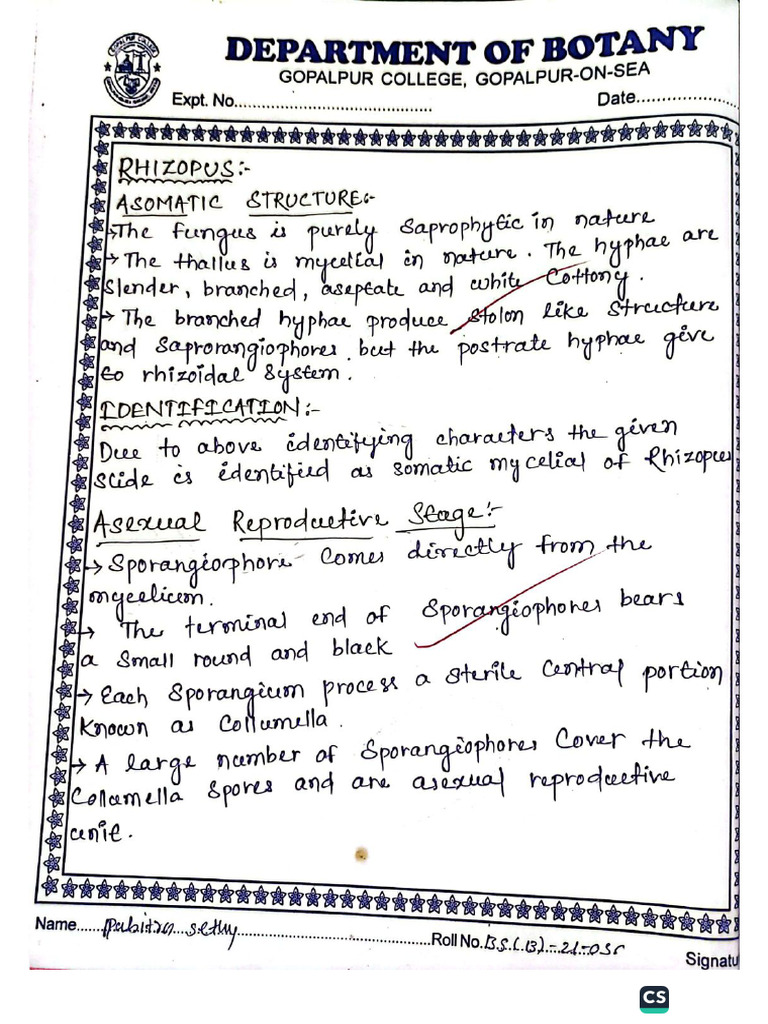 DEPARTMENT OF BOTANY
GOPALPUR COLLEGE, GOPALPUR-ON-SEA
Expt. No.......................................
Date.....................
RHIZOPUS:-
ASOMATIC STRUCTURE:-
→The fungus is purely saprophytic in nature
→ The thallus is mycelial in nature. The hyphae are
slender, branched, aseptate and white cottony.
→ The branched hyphae produce stolon like structure
and saprorangiophores, but the postrate hyphae give
to rhizoidal system.
IDENTIFICATION:-
Due to above identifying characters the given
slide is identified as somatic mycelial of Rhizopus
Asexual Reproductive Stage:-
→ Sporangiorphore comes directly from the
mycelium.
→ The terminal end of sporangiophores bears
a small round and black
→ Each sporangium process a sterile central portion
known as collumella.
→ A large number of sporangiophores cover the
collumella spores and are asexual reproductive
unit.
Name.......Pabitra sethy....................................Roll No.BS(B)-21-05
Signatu
CS